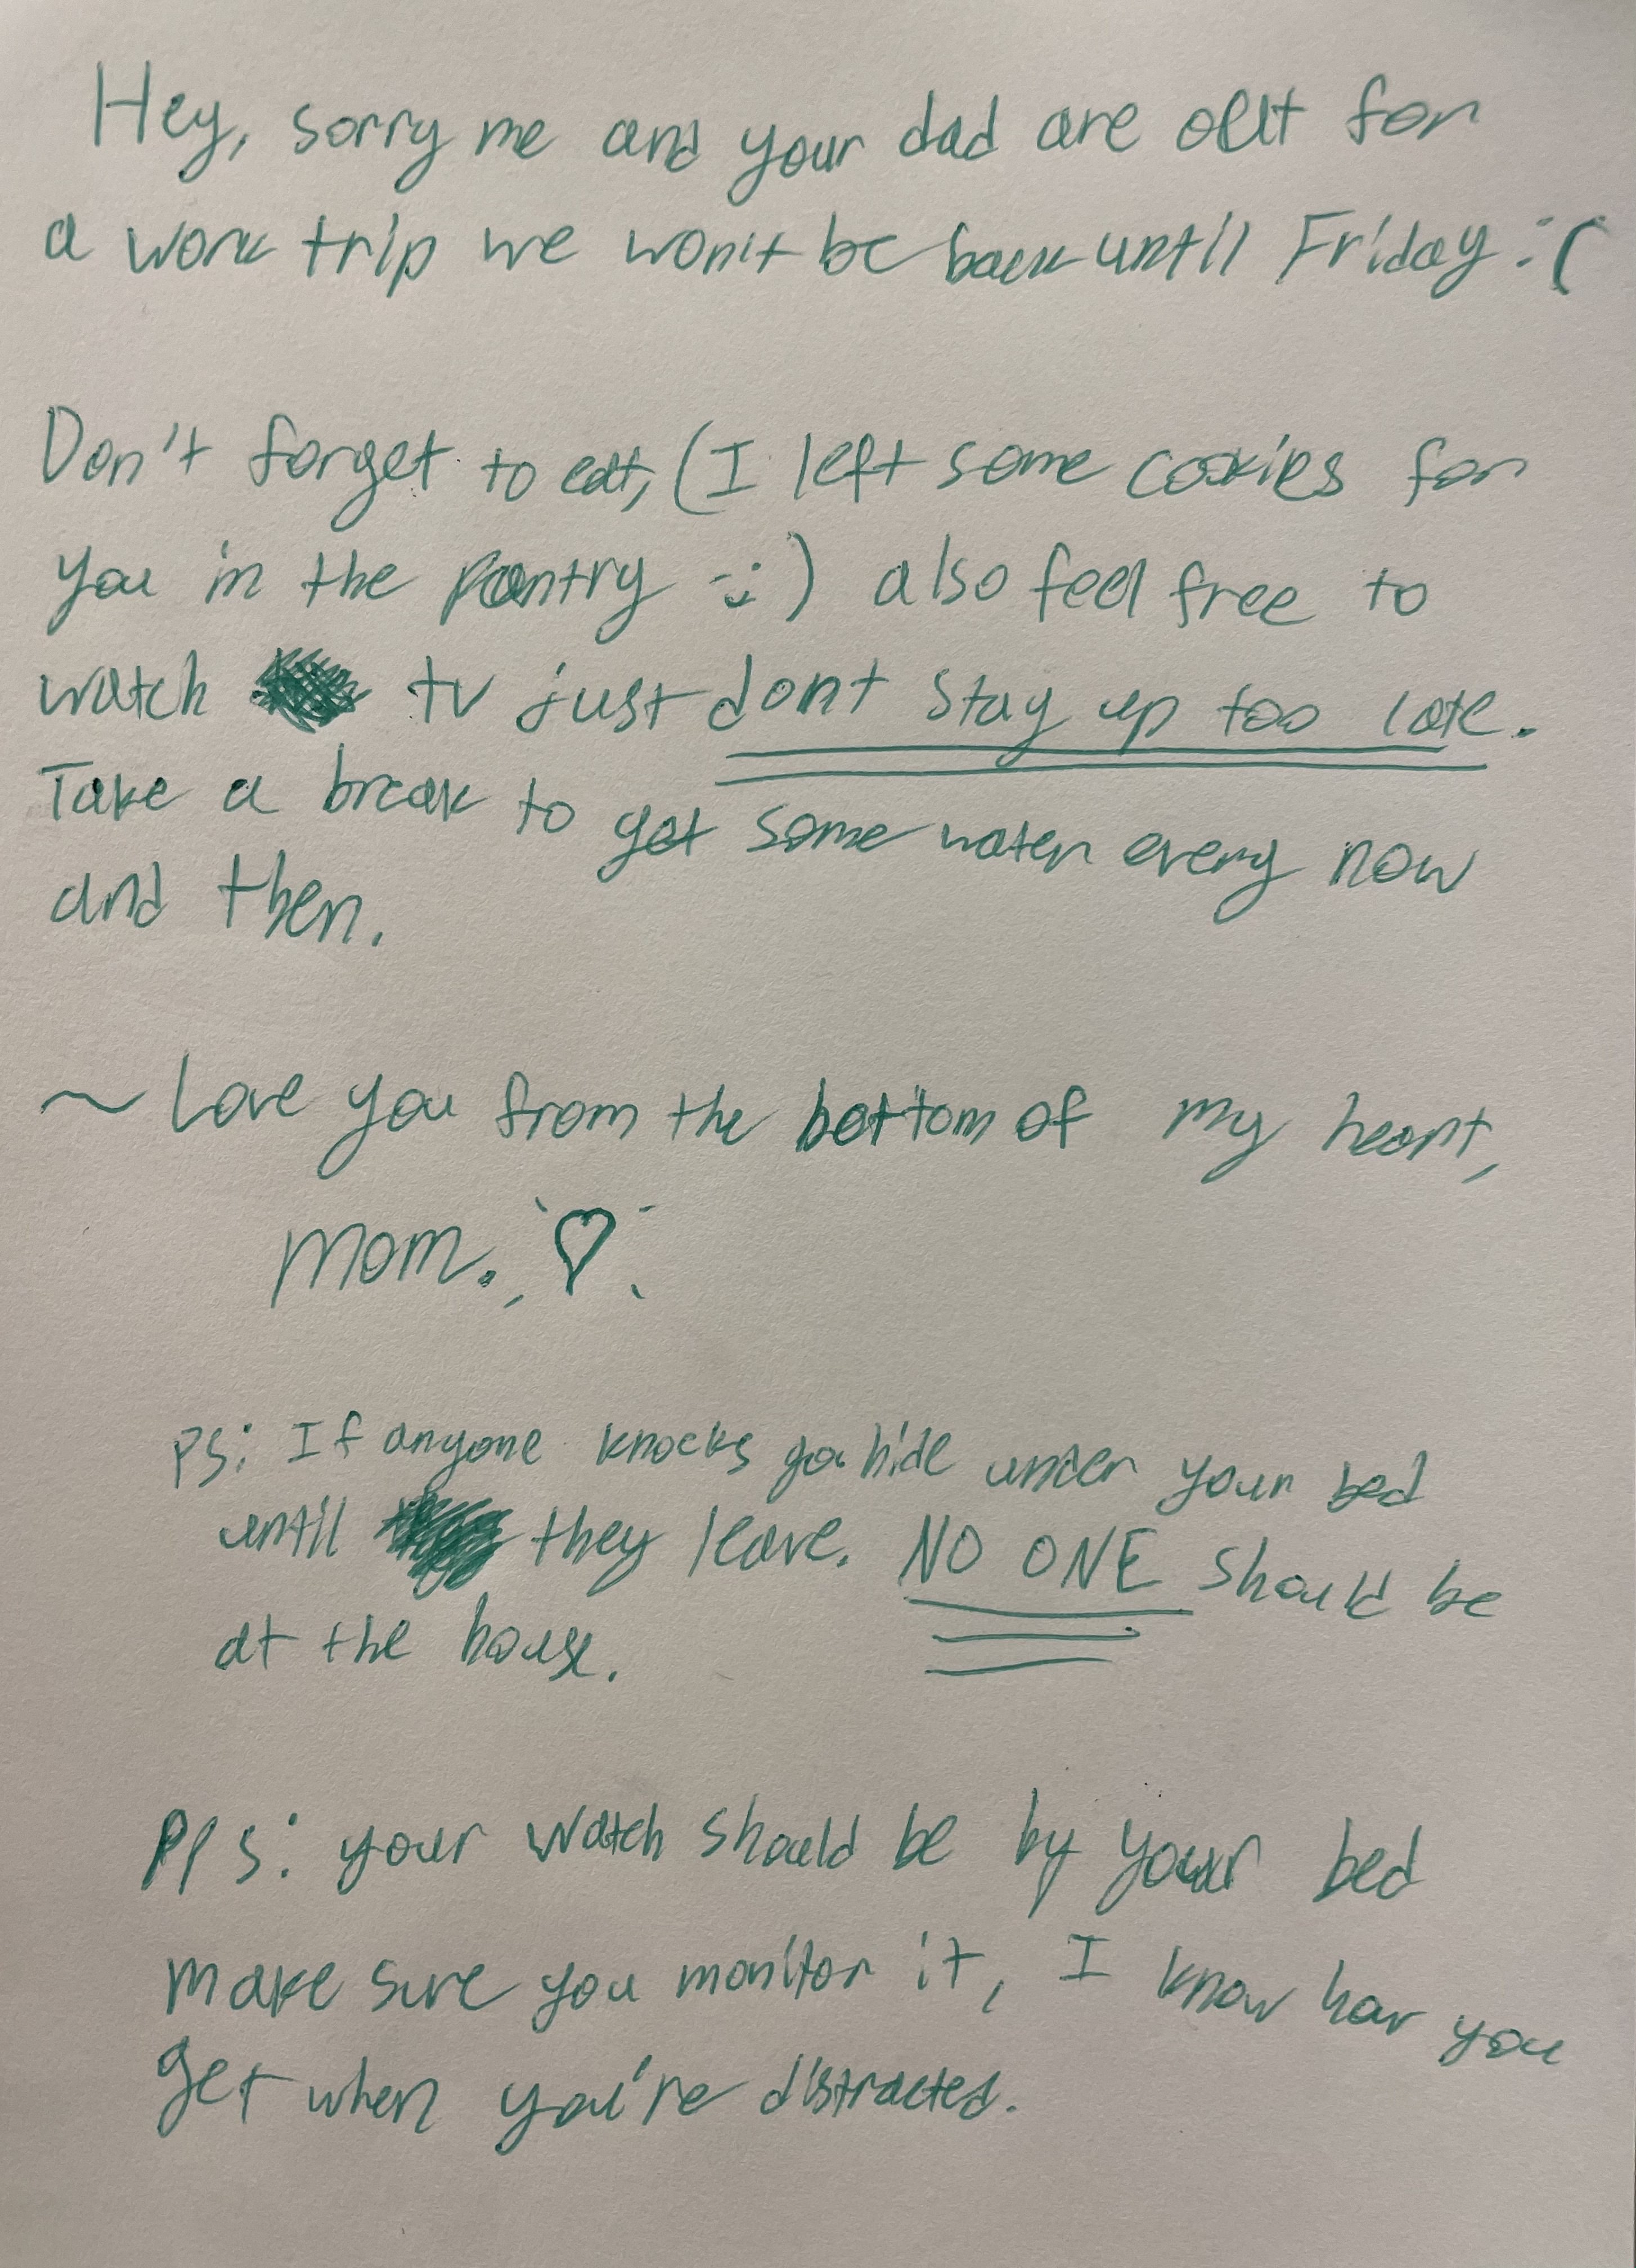 Hey, sorry me and your dad are out for
a work trip we won't be back until Friday :(
Don't forget to eat, (I left some cookies for
you in the pantry :) also feel free to
watch tv just dont stay up too late.
Take a break to get some water every now
and then.
~ Love you from the bottom of my heart,
mom. ♡
PS: If anyone knocks go hide under your bed
until they leave. NO ONE should be
at the house.
PPS: your watch should be by your bed
make sure you monitor it, I know how you
get when you're distracted.